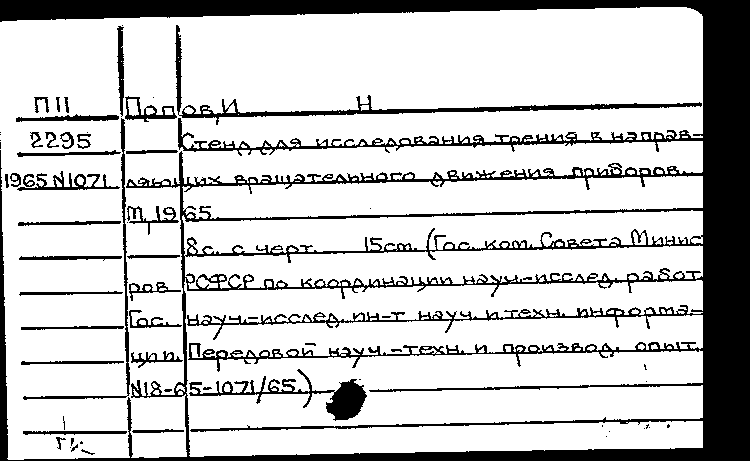 ПII Попов, И Н
2295 Стенд для исследования трения в направ-
1965 N1071 ляющих вращательного движения приборов.
М, 1965
8с. с черт. 15см. (Гос. ком. Совета Минис
ров РСФСР по координации науч.-исслед. работ.
Гос. науч.-исслед. ин-т науч. и техн. информа-
ции. Передовой науч.-техн. и производ. опыт.
N18-65-1071/65.)